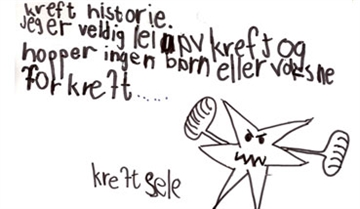 kreft historie.
jeg er veldig lei av kreft og
hopper ingen børn eller voksne
for kreft.....
kreft sele